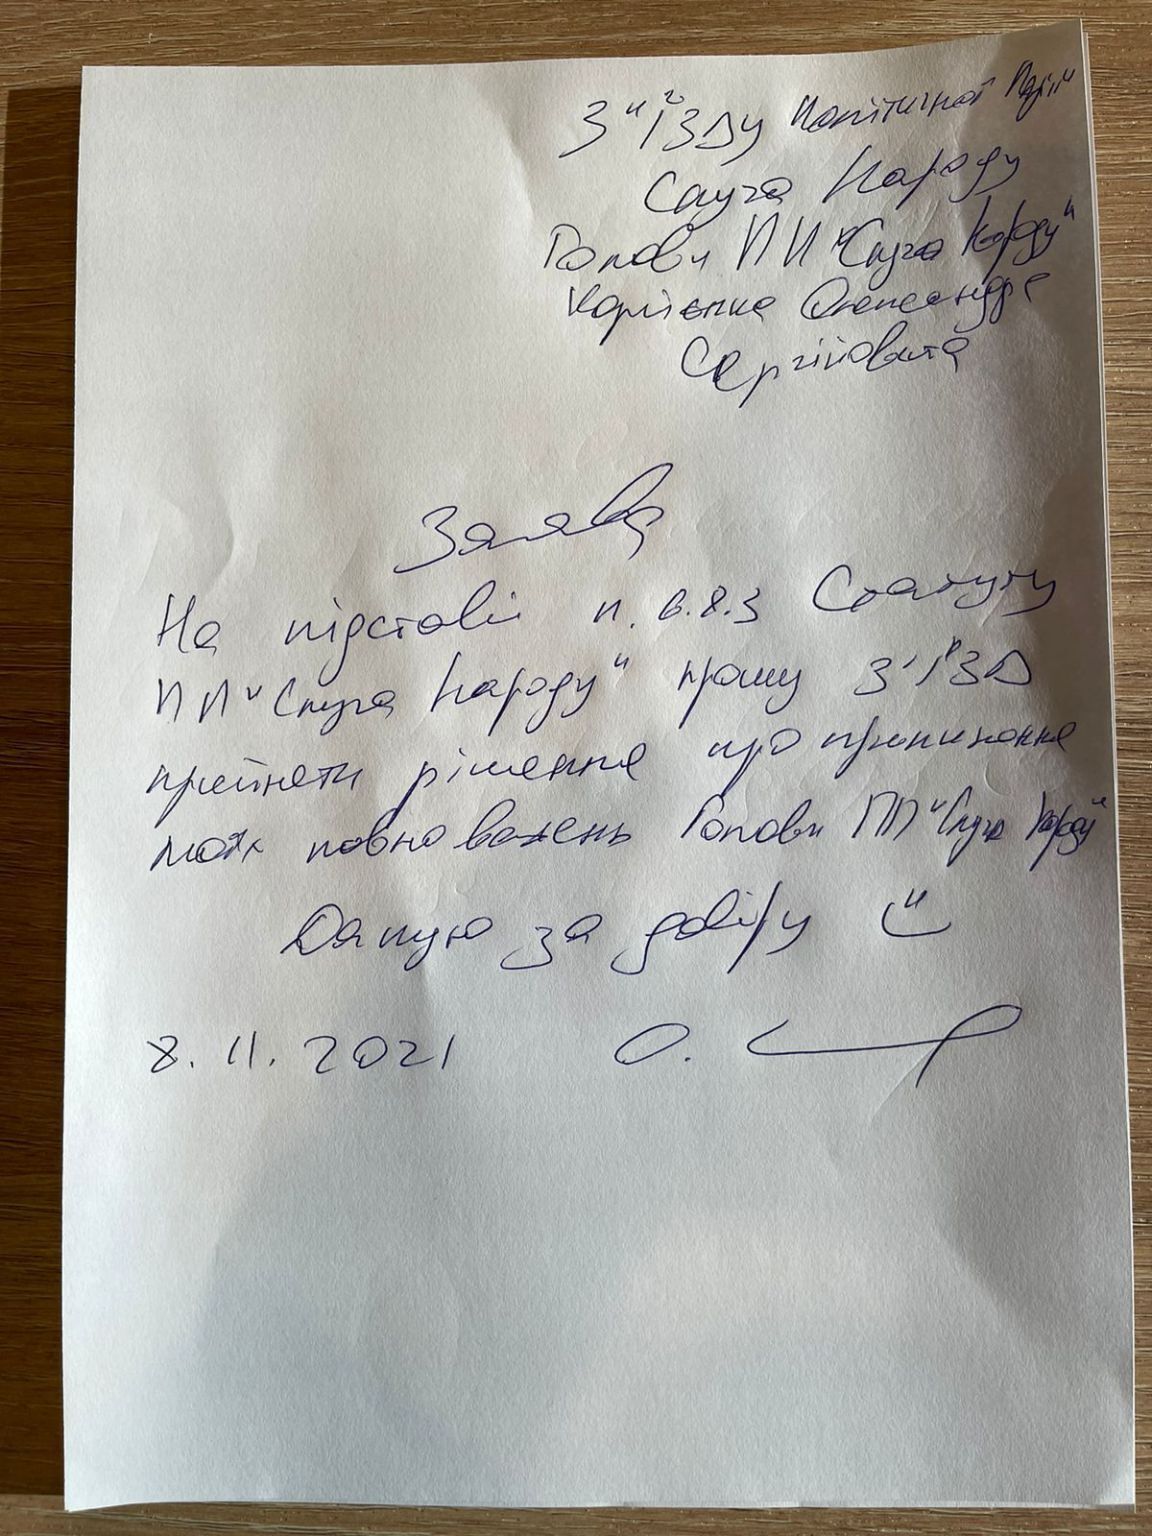 З"їзду Політичної Партії
Слуга Народу
Голови ПП "Слуга Народу"
Корнієнка Олександра
Сергійовича
Заява
На підставі п. 6.8.3 Статуту
ПП "Слуга Народу" прошу З'ЇЗД
прийняти рішення про припинення
моїх повноважень Голови ПП "Слуга Народу"
Дякую за довіру
8.11.2021 О.